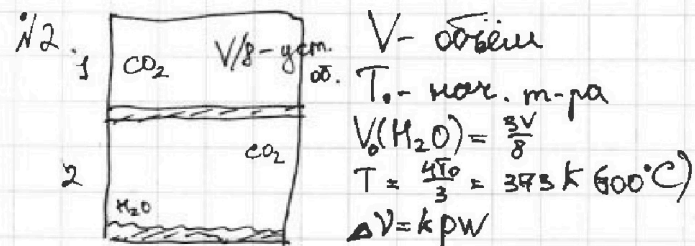 №2.
1 CO₂ V/8 - уст. об.
2 CO₂
H₂O
V - объём
T₀ - нач. т-ра
V₀(H₂O) = 3V/8
T = 4T₀/3 = 373 K (100°C)
ΔV = kpw